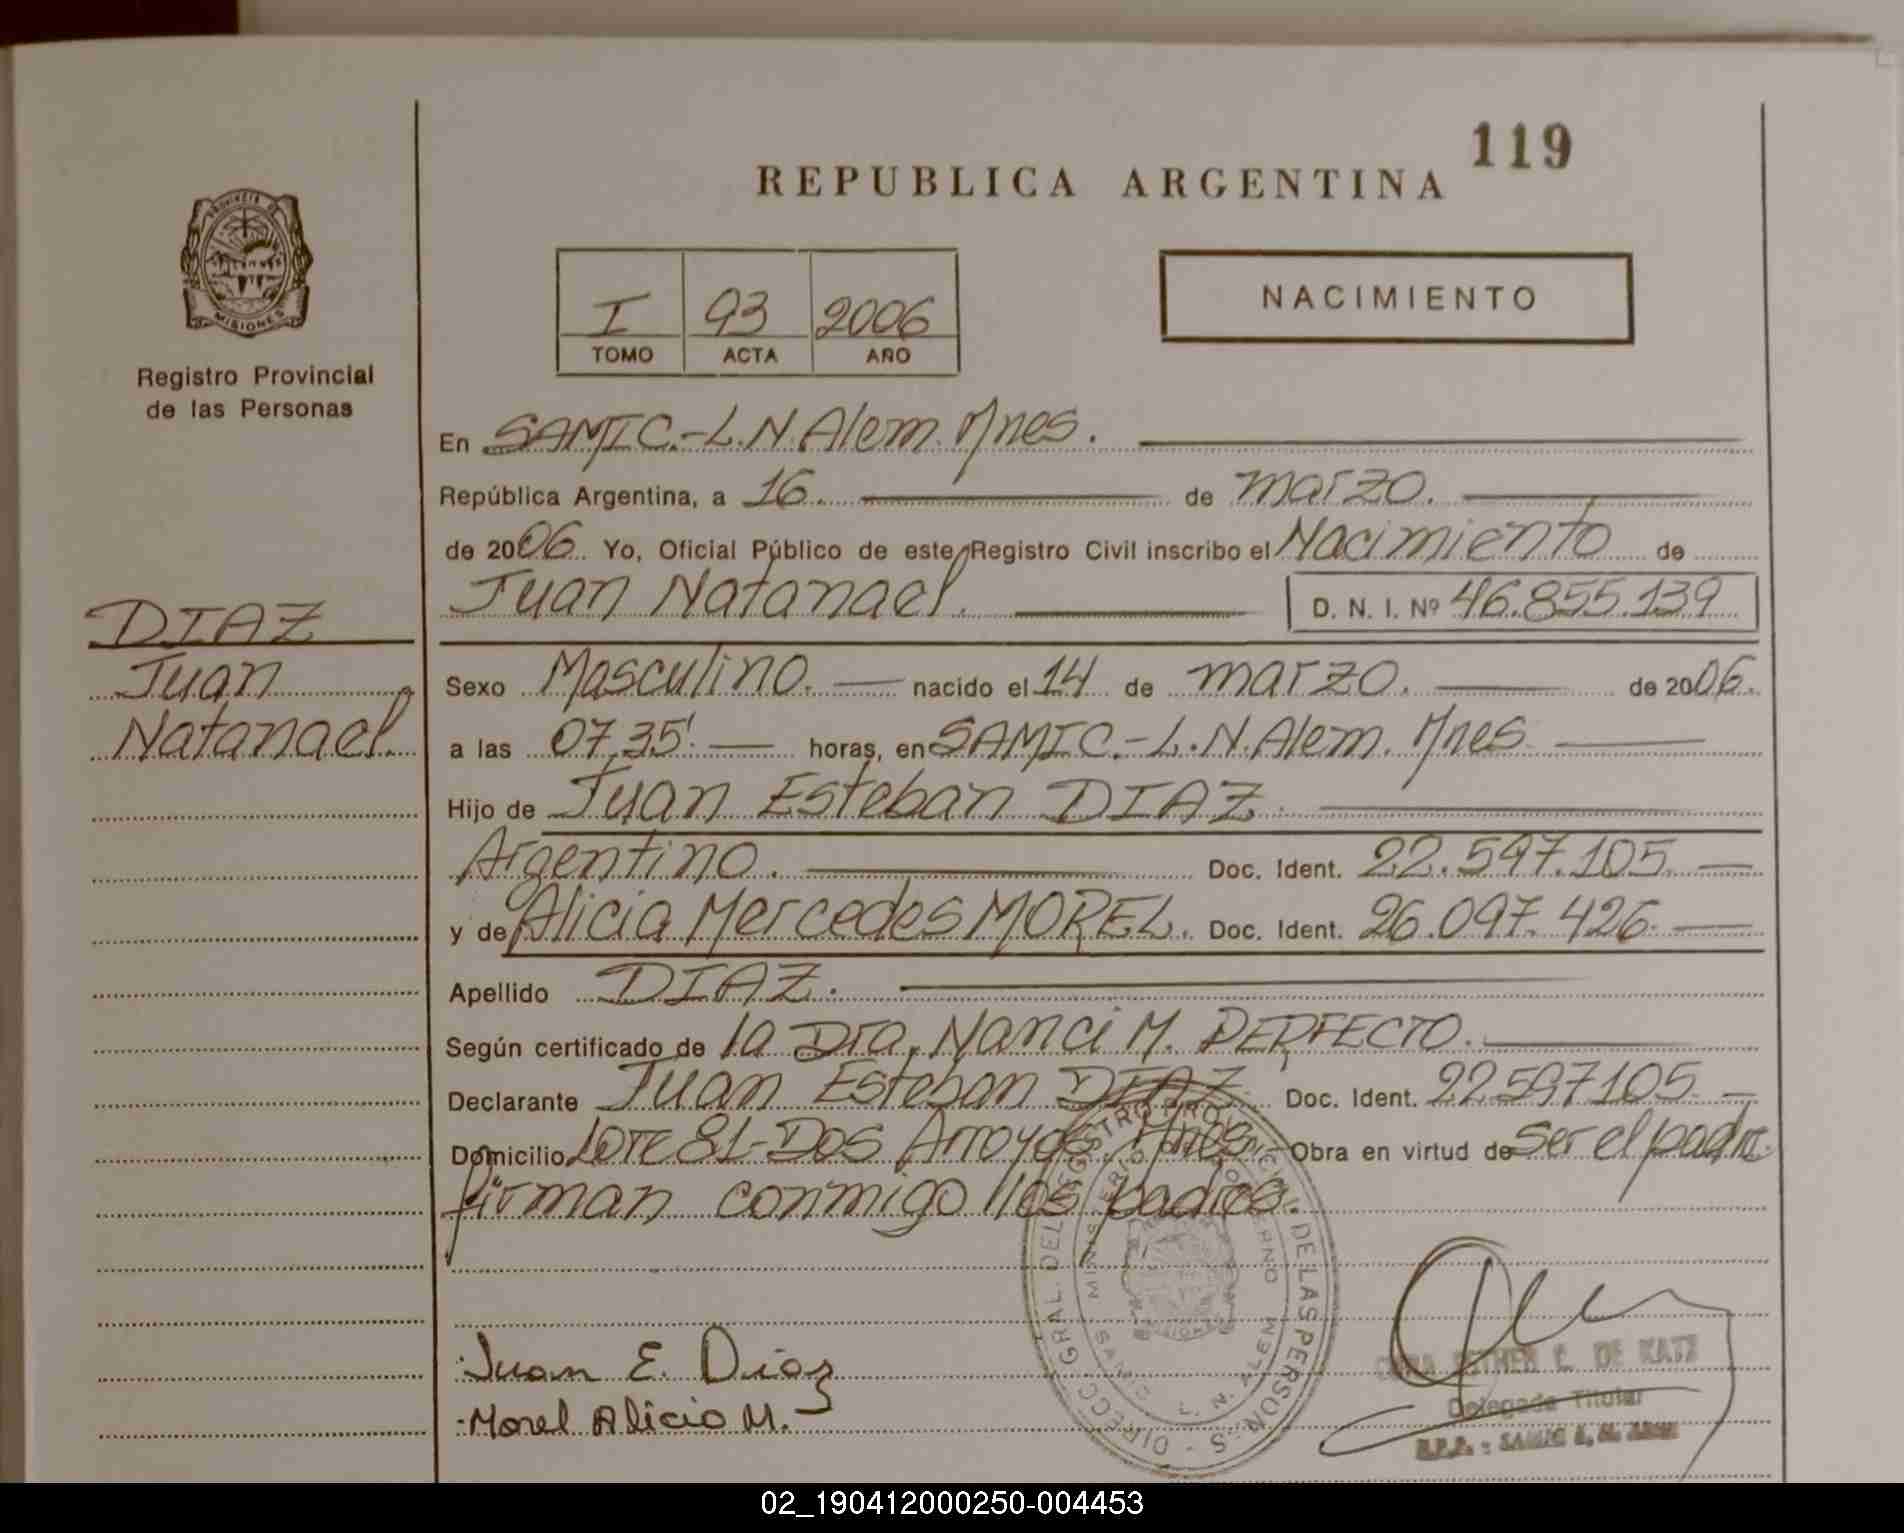 119
REPUBLICA ARGENTINA
PROVINCIA DE
MISIONES
Registro Provincial
de las Personas
I 93 2006
TOMO ACTA AÑO
NACIMIENTO
En SAMIC.-L.N.Alem. Mnes.
República Argentina, a 16. de marzo.
de 2006. Yo, Oficial Público de este Registro Civil inscribo el Nacimiento de
Juan Natanael. D. N. I. Nº 46.855.139
DIAZ
Juan
Natanael.
Sexo Masculino. nacido el 14 de marzo. de 2006.
a las 07,35' horas, en SAMIC.-L.N.Alem. Mnes
Hijo de Juan Esteban DIAZ.
Argentino. Doc. Ident. 22.597.105.
y de Alicia Mercedes MOREL. Doc. Ident. 26.097.426.
Apellido DIAZ.
Según certificado de la Dra, Nanci M. PERFECTO.
Declarante Juan Esteban DIAZ Doc. Ident. 22597105.
Domicilio Lote 81-Dos Arroyos. Mnes. Obra en virtud de Ser el padre.
firman conmigo los padres.
DIRECC. GRAL. DEL REGISTRO PROVINCIAL DE LAS PERSONAS
L. N. ALEM
Juan E. Diaz
Morel Alicia M.
ESTHER C. DE KATZ
Delegada Titular
02_190412000250-004453